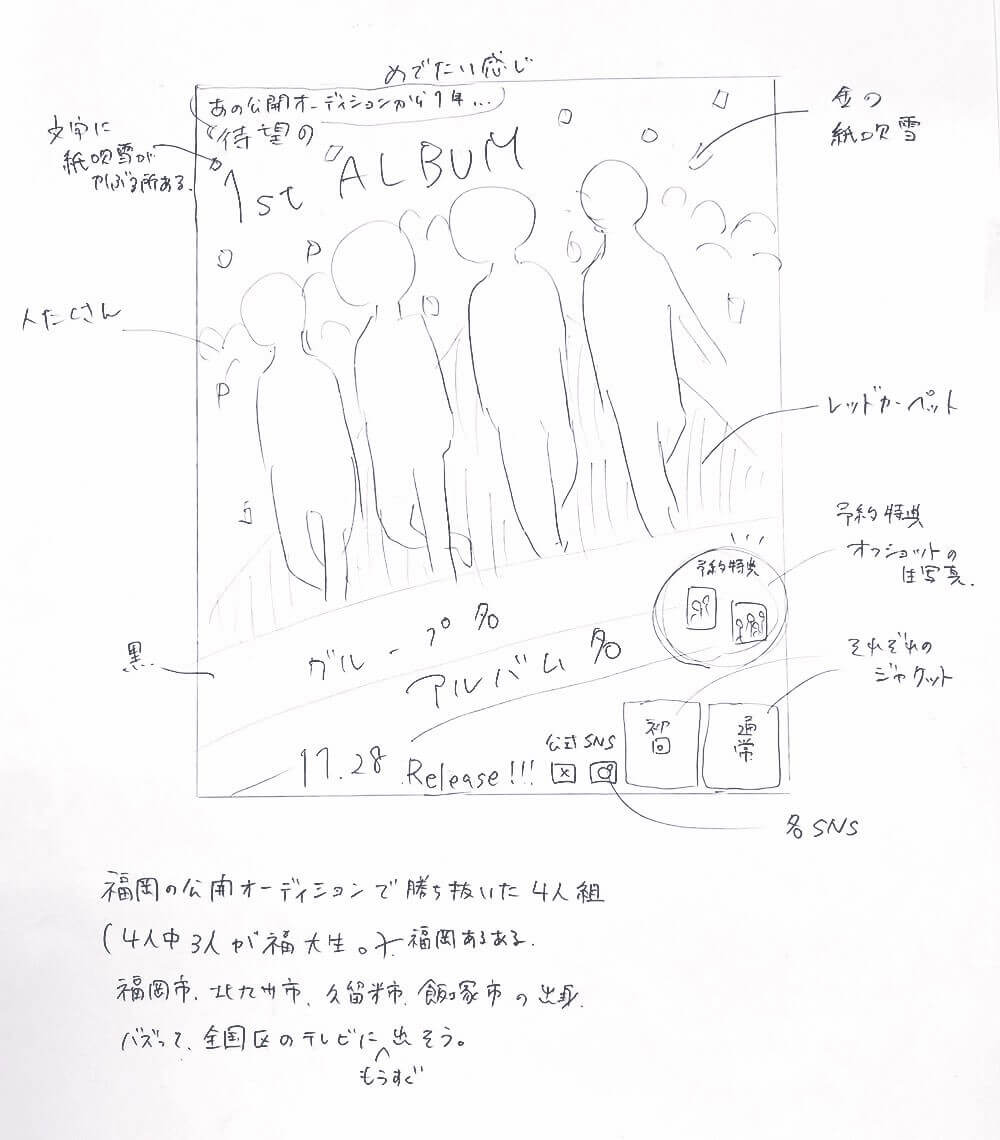 めでたい感じ
あの公開オーディションから1年...
待望の
1st ALBUM
金の
紙吹雪
文字に
紙吹雪が
かぶる所ある。
人たくさん
レッドカーペット
予約特典
オフショットの
生写真。
予約特典
黒
グループ名
アルバム名
それぞれの
ジャケット
初回
通常
公式SNS
X
11.28 Release!!!
各SNS
福岡の公開オーディションで勝ち抜いた4人組
(4人中3人が福大生。)←福岡あるある。
福岡市、北九州市、久留米市、飯塚市の出身。
バズって、全国区のテレビにもうすぐ出そう。